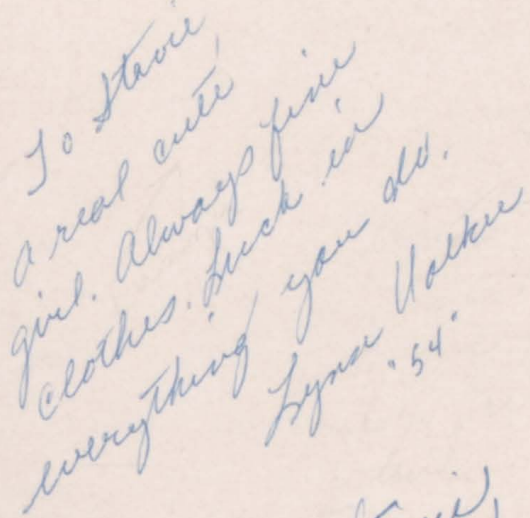 To Stavie,
a real cute
girl. Always fine
clothes. Luck in
everything you do.
Lynn Volker
"54"